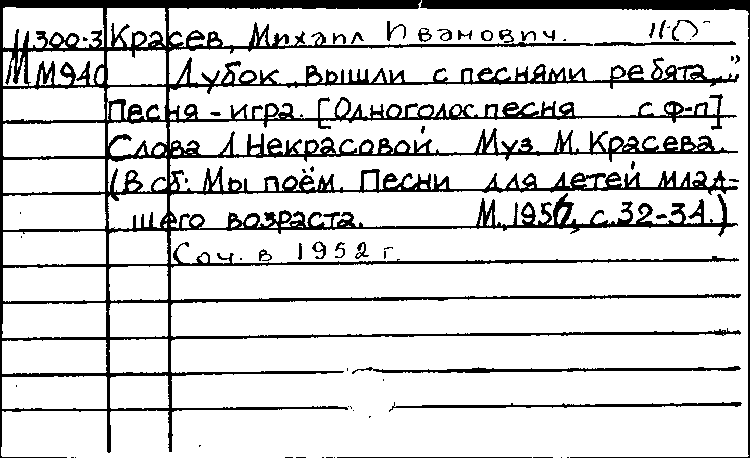 М300-3 Красев, Михаил Иванович. НО
М940 Дубок „Вышли с песнями ребята..."
Песня - игра. [Одноголос. песня с ф-п]
Слова Л. Некрасовой. Муз. М. Красева.
(В сб: Мы поём. Песни для детей млад-
шего возраста. М., 1957, с. 32-34.)
Соч. в 1952 г.